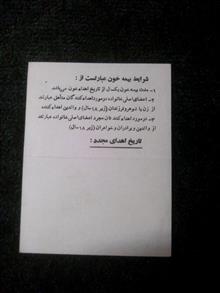 شرایط بیمه خون عبارتست از :
۱- مدت بیمه خون یکسال از تاریخ اهداء خون می‌باشد.
۲- اعضای اصلی خانواده درمورد اهداء کنندگان متأهل عبارتند
از زن یا شوهر و فرزندان (زیر ۱۸ سال) و والدین اهداء کننده.
۳- درمورد اهداء کنندگان مجرد اعضای اصلی خانواده عبارتند
از والدین و برادران و خواهران (زیر ۱۸ سال)
تاریخ اهدای مجدد :